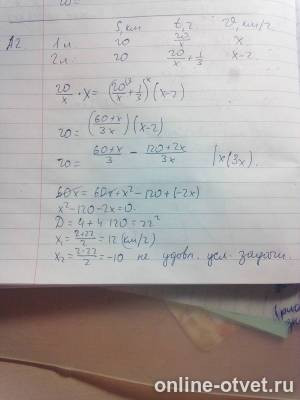 S, км t, ч V, км/ч
А2 1л 20 20/x x
2л 20 20/x + 1/3 x-2
20/x · x = (20/x + 1/3)(x-2)
20 = (60+x/3x)(x-2)
20 = 60+x/3 - 120+2x/3x |x(3x).
60x = 60x + x² - 120 + (-2x)
x² - 120 - 2x = 0.
D = 4 + 4·120 = 22²
x₁ = 2+22/2 = 12 (км/ч)
x₂ = 2-22/2 = -10 не удовл. усл. задачи.
online-otvet.ru